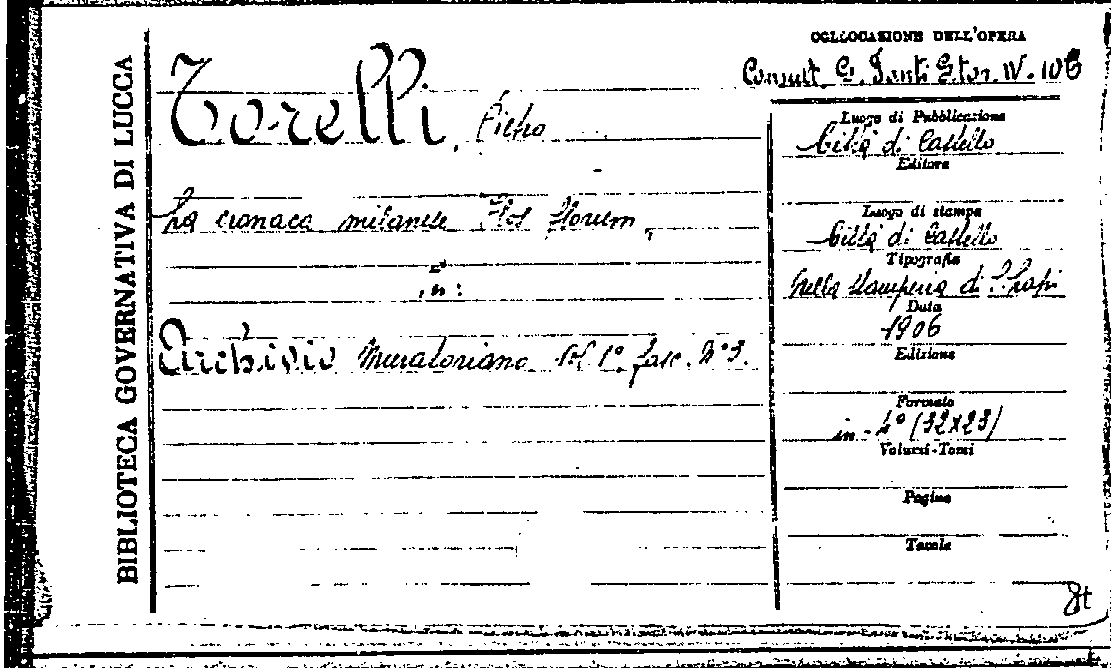 BIBLIOTECA GOVERNATIVA DI LUCCA
COLLOCAZIONE DELL'OPERA
Consult. G. Santi Stor. IV. 10
Torelli, Pietro
La cronaca milanese Flos florum,
in:
Archivio Muratoriano Vol 1° fasc. N° 3.
Luogo di Pubblicazione
Città di Castello
Editore
Luogo di stampa
Città di Castello
Tipografia
Nella stamperia di S. Lapi
Data
1906
Edizione
Formato
in-4° (32x23)
Volumi-Tomi
Pagine
Tavole